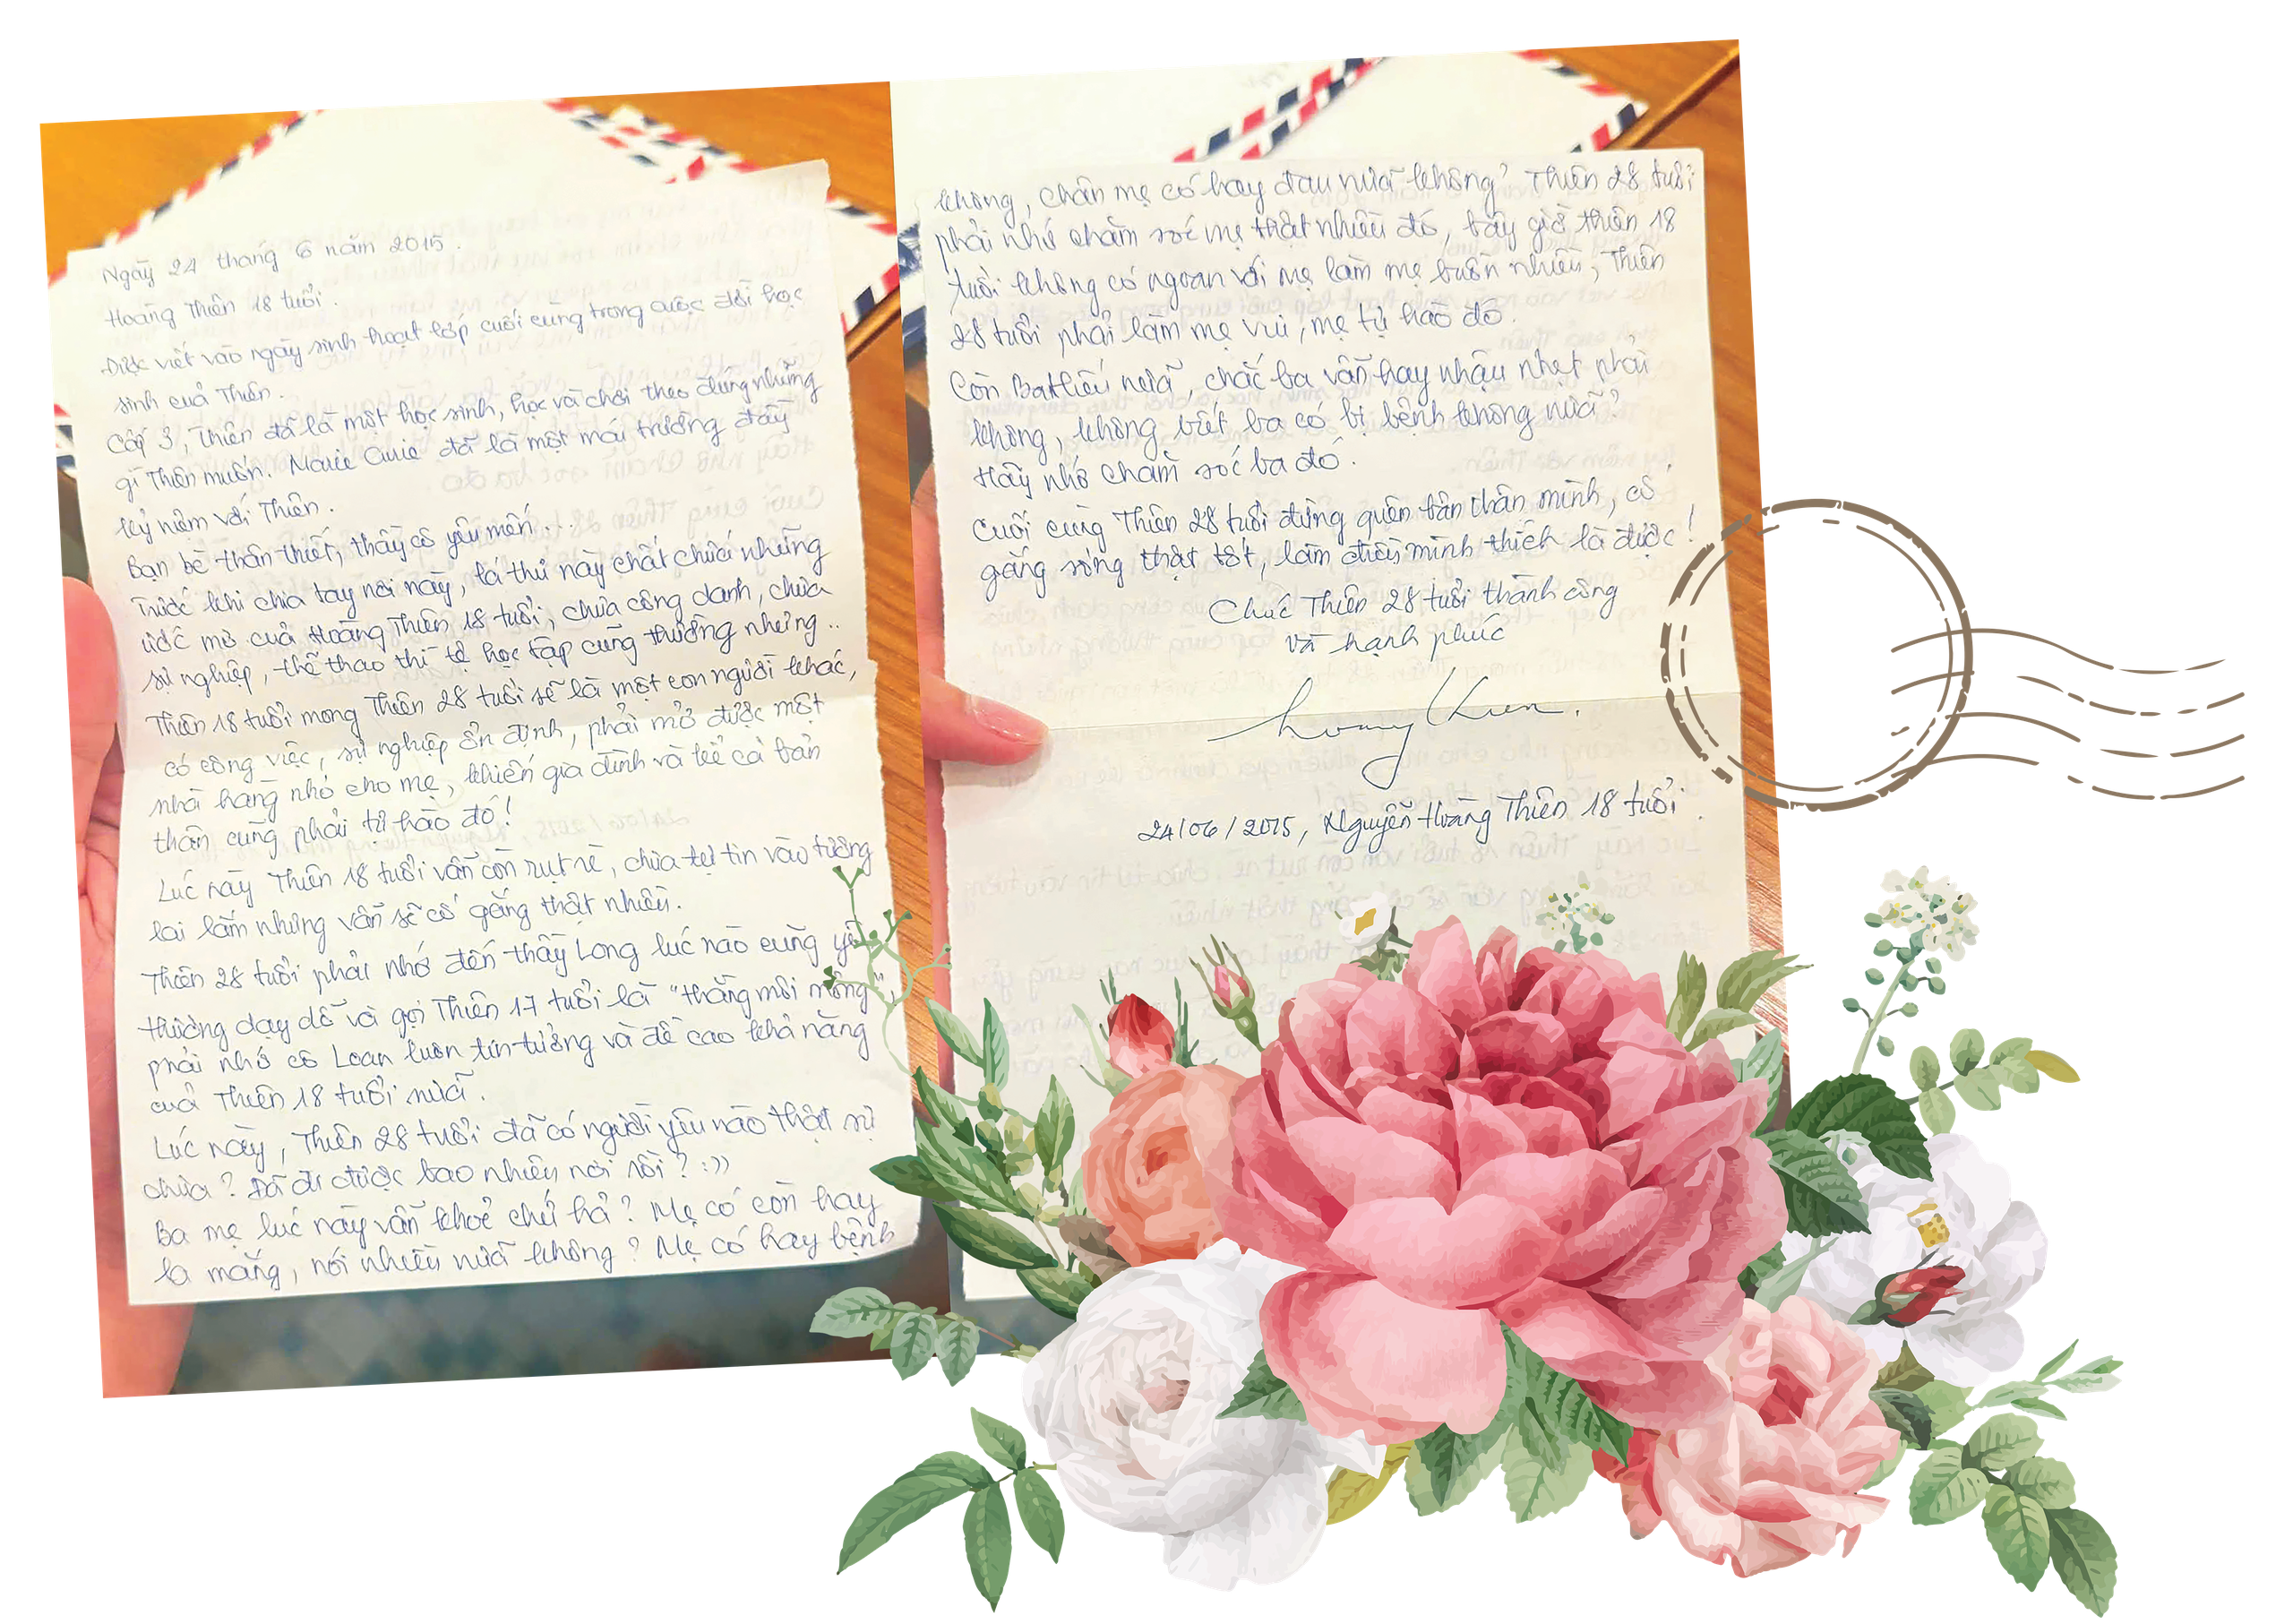 Ngày 24 tháng 6 năm 2015.
Hoàng Thiên 18 tuổi.
Được viết vào ngày sinh hoạt lớp cuối cùng trong cuộc đời học
sinh của Thiên.
Cấp 3, Thiên đã là một học sinh, học và chơi theo đúng những
gì Thiên muốn. Marie Curie đã là một mái trường đầy
kỷ niệm với Thiên.
Bạn bè thân thiết, thầy cô yêu mến...
Trước khi chia tay nơi này, lá thư này chất chứa những
ước mơ của Hoàng Thiên 18 tuổi, chưa công danh, chưa
sự nghiệp, thể thao thì tệ học tập cũng thường nhưng..
Thiên 18 tuổi mong Thiên 28 tuổi sẽ là một con người khác,
có công việc, sự nghiệp ổn định, phải mở được một
nhà hàng nhỏ cho mẹ, khiến gia đình và kể cả bản
thân cũng phải tự hào đó!
Lúc này Thiên 18 tuổi vẫn còn rụt rè, chưa tự tin vào tương
lai lắm nhưng vẫn sẽ cố gắng thật nhiều.
Thiên 28 tuổi phải nhớ đến thầy Long lúc nào cũng yêu
thương dạy dỗ và gọi Thiên 17 tuổi là "thằng môi mỏng",
phải nhớ cô Loan luôn tin tưởng và đề cao khả năng
của Thiên 18 tuổi nữa.
Lúc này, Thiên 28 tuổi đã có người yêu nào thật sự
chưa? Đã đi được bao nhiêu nơi rồi? :))
Ba mẹ lúc này vẫn khoẻ chứ hả? Mẹ có còn hay
la mắng, nói nhiều nữa không? Mẹ có hay bệnh
không, chân mẹ có hay đau nữa không? Thiên 28 tuổi
phải nhớ chăm sóc mẹ thật nhiều đó, bây giờ Thiên 18
tuổi không có ngoan với mẹ làm mẹ buồn nhiều, Thiên
28 tuổi phải làm mẹ vui, mẹ tự hào đó.
Còn Ba Hiếu nữa, chắc ba vẫn hay nhậu nhẹt phải
không, không biết ba có bị bệnh không nữa?
Hãy nhớ chăm sóc ba đó.
Cuối cùng Thiên 28 tuổi đừng quên bản thân mình, cố
gắng sống thật tốt, làm điều mình thích là được!
Chúc Thiên 28 tuổi thành công
và hạnh phúc
24/06/2015, Nguyễn Hoàng Thiên 18 tuổi.